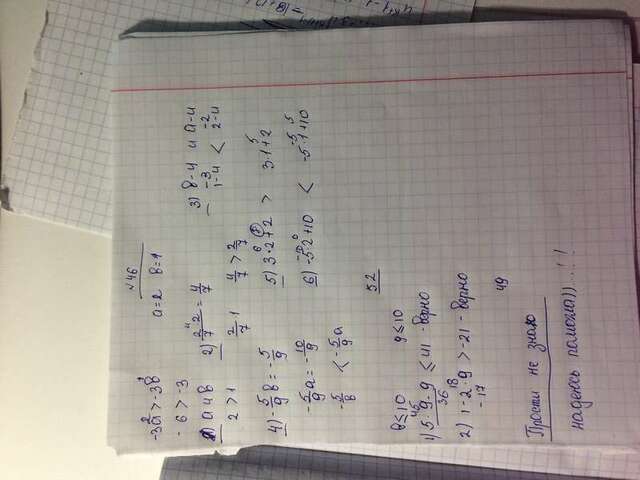 №46
a=2 b=1
-3a² > -3b¹
- 6 > -3
1) a и b
2 > 1
2) 2·2/7 = 4/7
2/7 · 1 4/7 > 2/7
3) b-4 и a-4
-3 -2
1-4 < 2-4
4) -5/9 b = -5/9
-5/9 a = -10/9
-5/8 < -5/9 a
5) 3·2+2 > 3·1+2
6) -5·2+10 < -5·1+10
52
b≤10 9≤10
1) 5·9-9 ≤ 41 - верно
45
36
2) 1-2·9 > -21 - верно
18
-17
49
Прости не знаю
надеюсь помогла))...!!